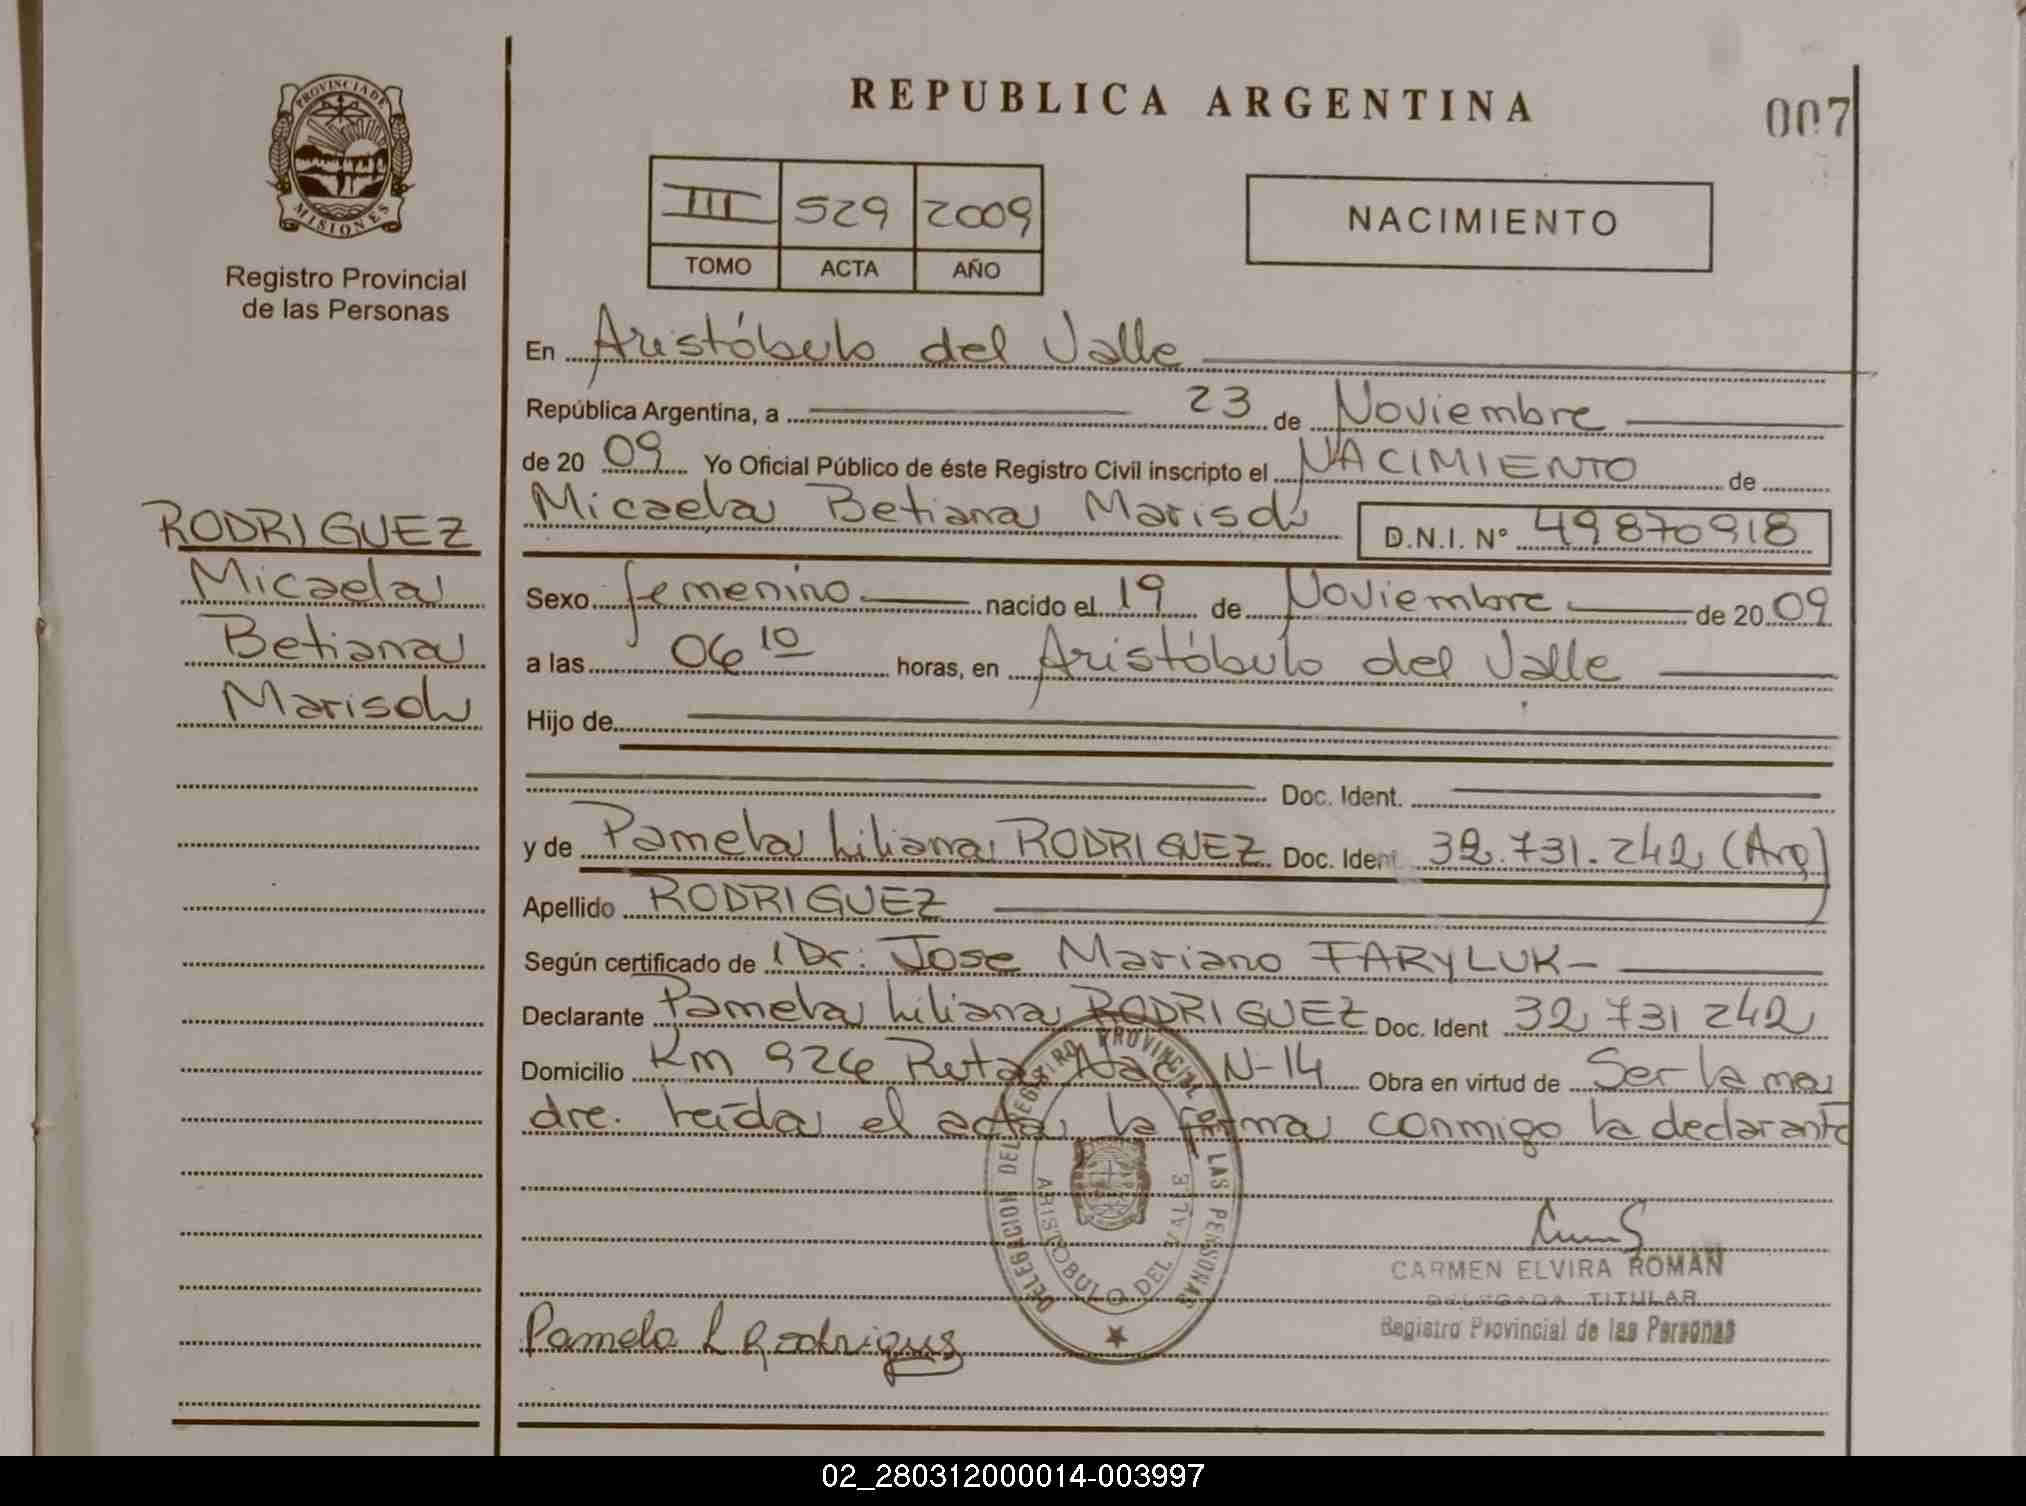 PROVINCIA DE
MISIONES
Registro Provincial
de las Personas
REPUBLICA ARGENTINA
007
III 529 2009
TOMO ACTA AÑO
NACIMIENTO
En Aristóbulo del Valle
República Argentina, a 23 de Noviembre
de 20 09 Yo Oficial Público de éste Registro Civil inscripto el NACIMIENTO de
Micaela Betiana Marisol D.N.I. Nº 49870918
RODRIGUEZ
Micaela
Betiana
Marisol
Sexo femenino nacido el 19 de Noviembre de 20 09
a las 06 10 horas, en Aristóbulo del Valle
Hijo de
Doc. Ident.
y de Pamela Liliana RODRIGUEZ Doc. Ident 32.731.242 (Arg)
Apellido RODRIGUEZ
Según certificado de Dr: Jose Mariano FARYLUK-
Declarante Pamela Liliana RODRIGUEZ Doc. Ident 32 731 242
Domicilio Km 926 Ruta Nac N-14 Obra en virtud de Ser la ma
dre. Leída el acta la firma conmigo la declarante
DELEGACION DEL REGISTRO PROVINCIAL DE LAS PERSONAS
ARISTOBULO DEL VALLE
CARMEN ELVIRA ROMAN
DELEGADA TITULAR
Registro Provincial de las Personas
Pamela L Rodriguez
02_280312000014-003997